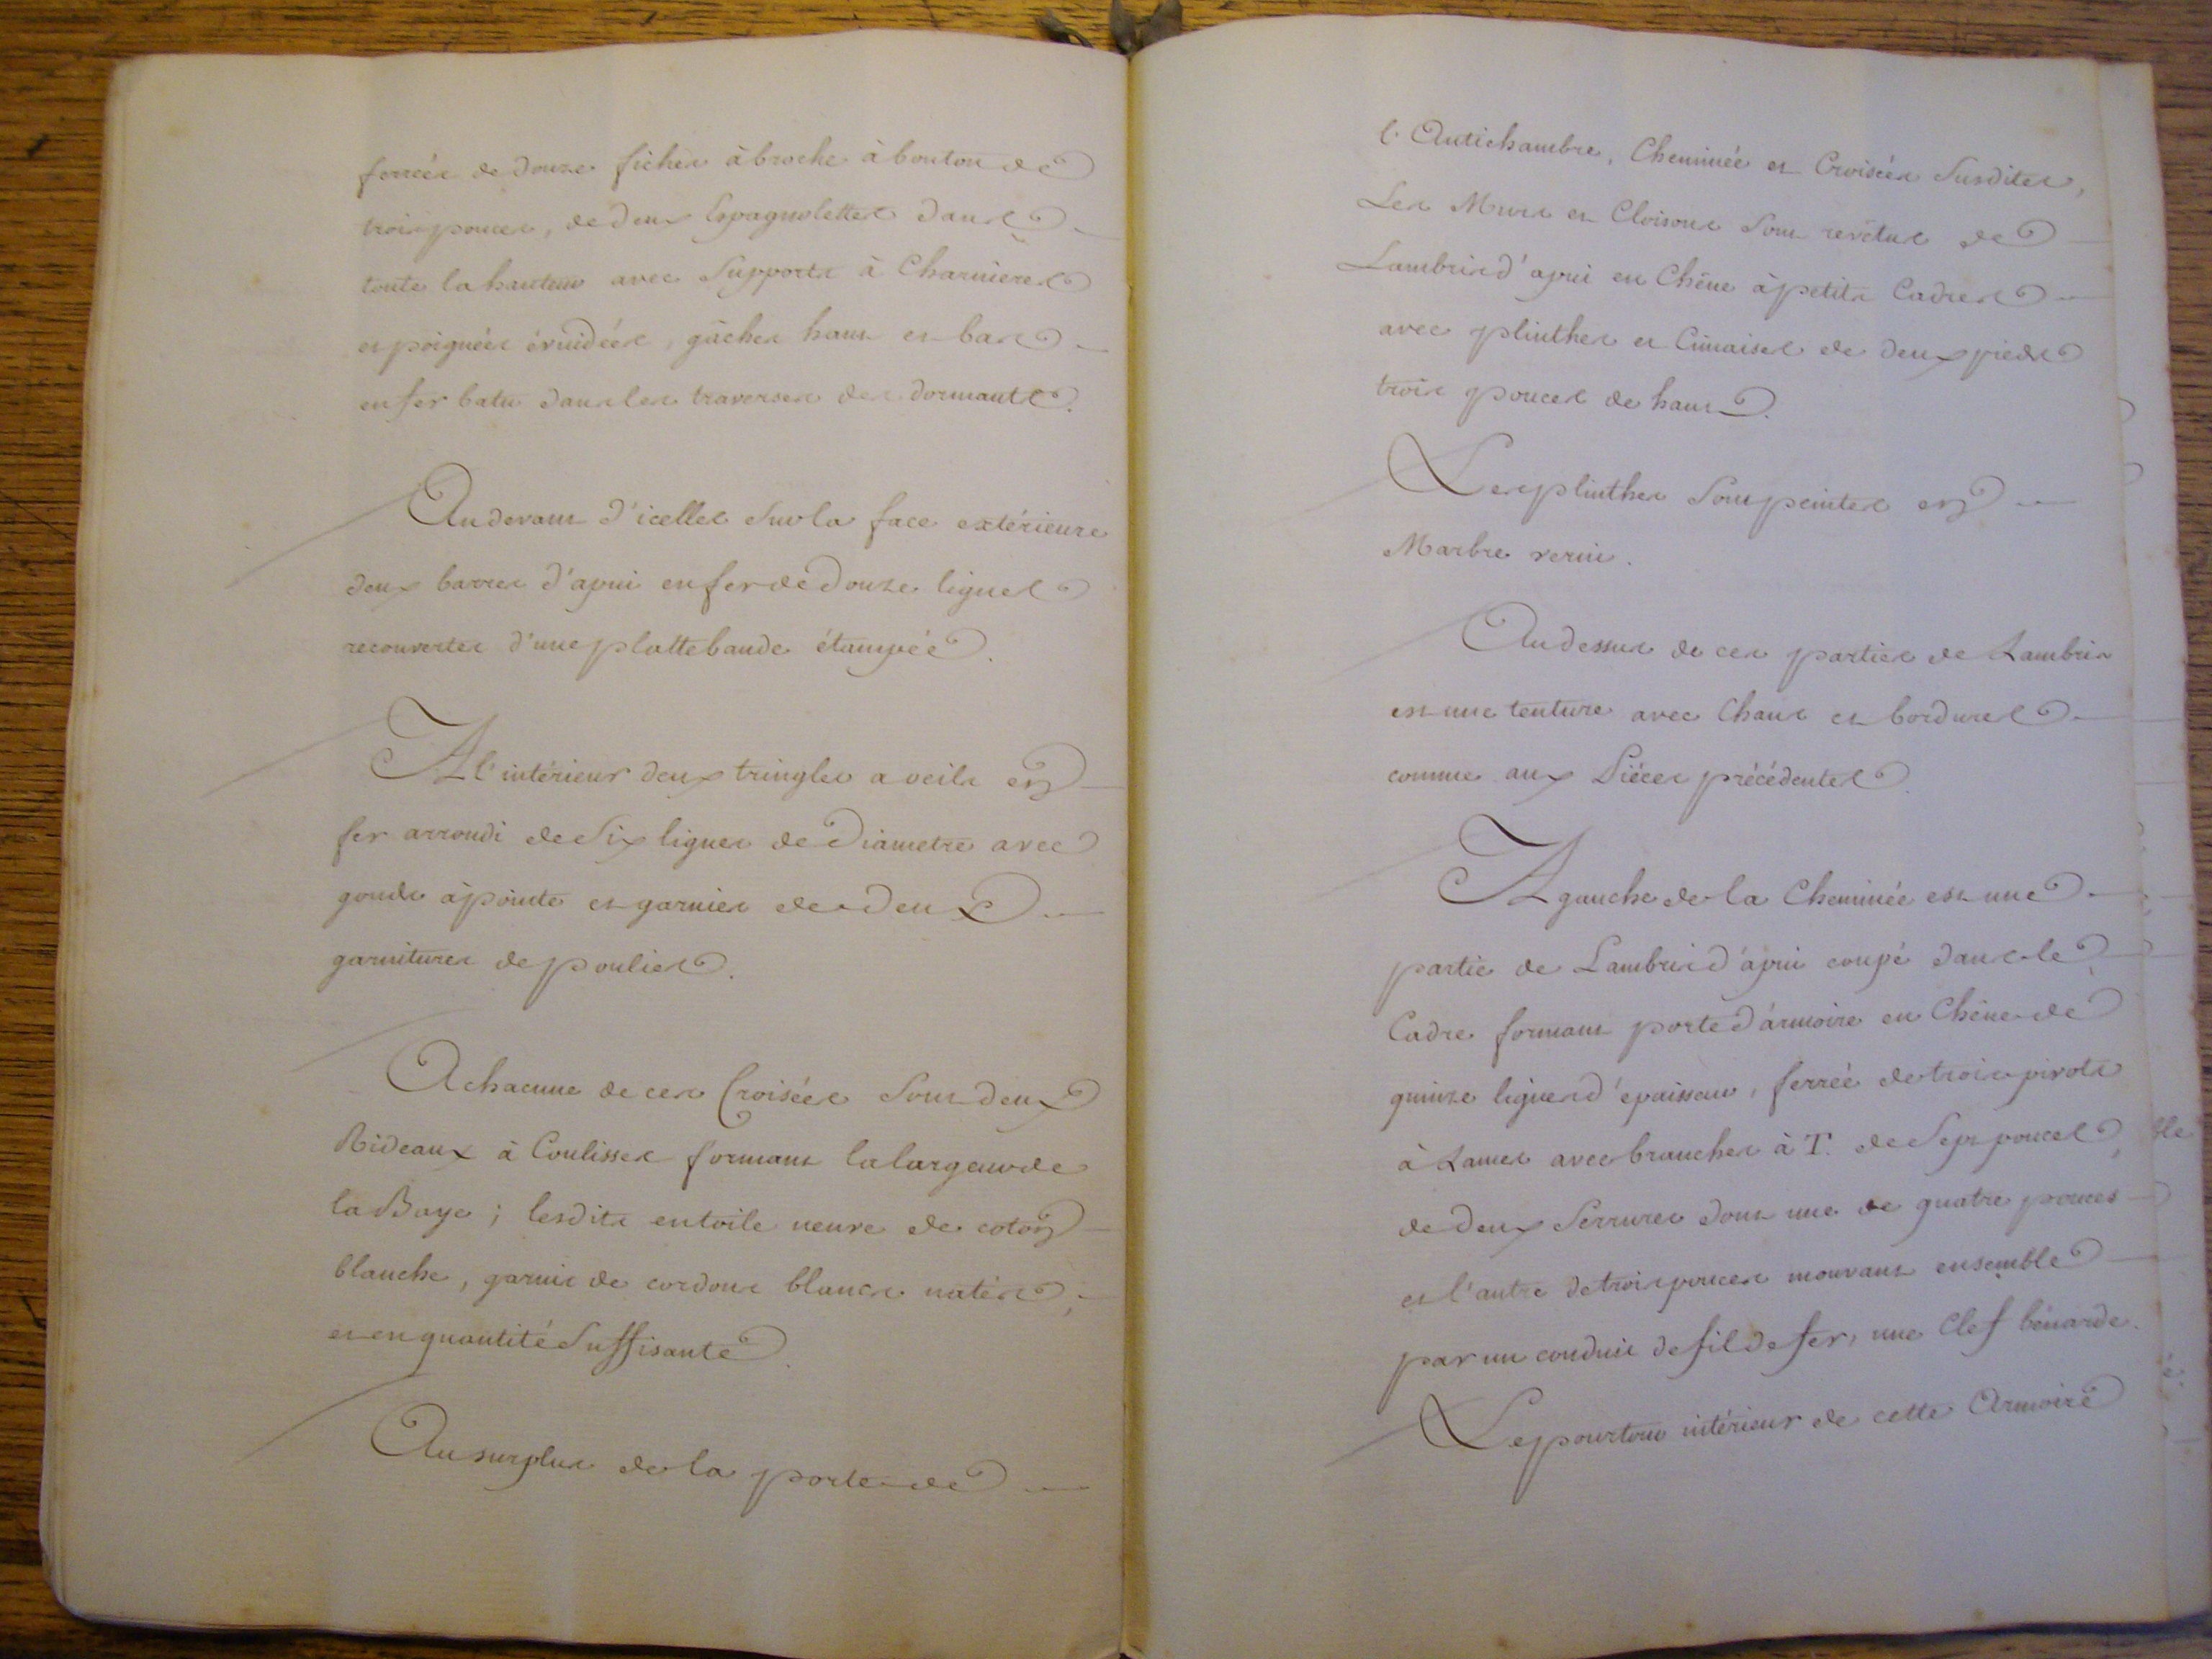 ferrées de douze fiches à broche à bouton de
trois pouces, de deux Espagnolettes dans
toute la hauteur avec Supports à Charnieres
et poignées évuidées, gâches haut et bas
en fer batu dans les traverses des dormants.
Au devant d'icelles Sur la face extérieure
deux barres d'apui en fer de douze lignes
recouvertes d'une plattebande étampée.
A l'intérieur deux tringles a voile en
fer arrondi de Six lignes de Diametre avec
gonds à pointe et garnies de deux
garnitures de poulies.
A chacune de ces Croisées Sont deux
Rideaux à Coulisses formant la largeur de
la Baye ; lesdits en toile neuve de coton
blanche, garnis de cordons blancs natés,
et en quantité Suffisante.
Au surplus de la porte de
l'Antichambre, Cheminée et Croisées Susdites,
Les Murs et Cloisons Sont revêtus de
Lambris d'apui en Chêne à petits Cadres
avec plinthes et Cimaises de deux pieds
trois pouces de haut.
Les plinthes Sont peintes en
Marbre verni.
Au dessus de ces parties de Lambris
est une tenture avec Chans et bordures
comme aux Piéces précédentes.
A gauche de la Cheminée est une
partie de Lambris d'apui coupé dans le
Cadre formant porte d'armoire en Chêne de
quinze lignes d'épaisseur, ferrée de trois pivots
à Lames avec branches à T. de Sept pouces,
de deux Serrures dont une de quatre pouces
et l'autre de trois pouces mouvant ensemble
par un conduit de fil de fer, une Clef bénarde.
Le pourtour intérieur de cette Armoire